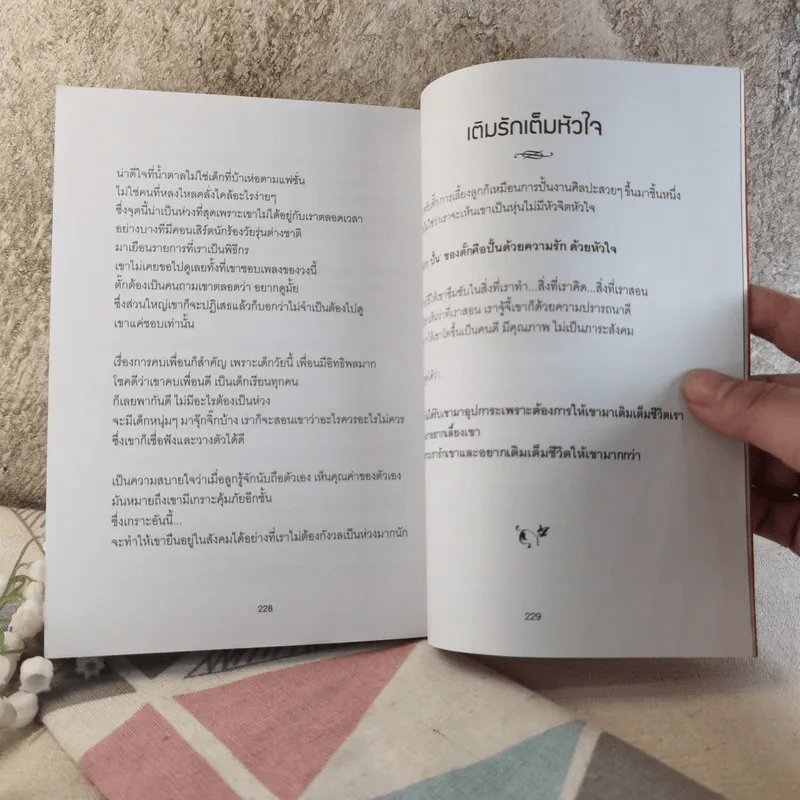 น่าดีใจที่น้ำตาลไม่ใช่เด็กที่บ้าเห่อตามแฟชั่น
ไม่ใช่คนที่หลงใหลคลั่งไคล้อะไรง่ายๆ
ซึ่งจุดนี้น่าเป็นห่วงที่สุดเพราะเขาไม่ได้อยู่กับเราตลอดเวลา
อย่างบางทีมีคอนเสิร์ตนักร้องวัยรุ่นต่างชาติ
มาเยือนรายการที่เราเป็นพิธีกร
เขาไม่เคยขอไปดูเลยทั้งที่เขาชอบเพลงของวงนี้
ตั๊กต้องเป็นคนถามเขาตลอดว่า อยากดูมั้ย
ซึ่งส่วนใหญ่เขาก็จะปฏิเสธแล้วก็บอกว่าไม่จำเป็นต้องไปดู
เขาแค่ชอบเท่านั้น
เรื่องการคบเพื่อนก็สำคัญ เพราะเด็กวัยนี้ เพื่อนมีอิทธิพลมาก
โชคดีว่าเขาคบเพื่อนดี เป็นเด็กเรียนทุกคน
ก็เลยพากันดี ไม่มีอะไรต้องเป็นห่วง
จะมีเด็กหนุ่มๆ มาจุ๊กจิ๊กบ้าง เราก็จะสอนเขาว่าอะไรควรอะไรไม่ควร
ซึ่งเขาก็เชื่อฟังและวางตัวได้ดี
เป็นความสบายใจว่าเมื่อลูกรู้จักนับถือตัวเอง เห็นคุณค่าของตัวเอง
มันหมายถึงเขามีเกราะคุ้มภัยอีกชั้น
ซึ่งเกราะอันนี้...
จะทำให้เขายืนอยู่ในสังคมได้อย่างที่เราไม่ต้องกังวลเป็นห่วงมากนัก
228
เติมรักเต็มหัวใจ
การเลี้ยงลูกก็เหมือนการปั้นงานศิลปะสวยๆ ขึ้นมาชิ้นหนึ่ง
ว่าเราจะเห็นเขาเป็นหุ่นไม่มีหัวจิตหัวใจ
ปั้น' ของตั๊กคือปั้นด้วยความรัก ด้วยหัวใจ
ให้เขาซึมซับในสิ่งที่เราทำ...สิ่งที่เราคิด...สิ่งที่เราสอน
ที่เราสอน เราจู้จี้เขาก็ด้วยความปรารถนาดี
ให้เขาโตขึ้นเป็นคนดี มีคุณภาพ ไม่เป็นภาระสังคม
ได้ว่า...
ได้รับเขามาอุปการะเพราะต้องการให้เขามาเติมเต็มชีวิตเรา
อยากเลี้ยงเขา
เรารักเขาและอยากเติมเต็มชีวิตให้เขามากกว่า
229